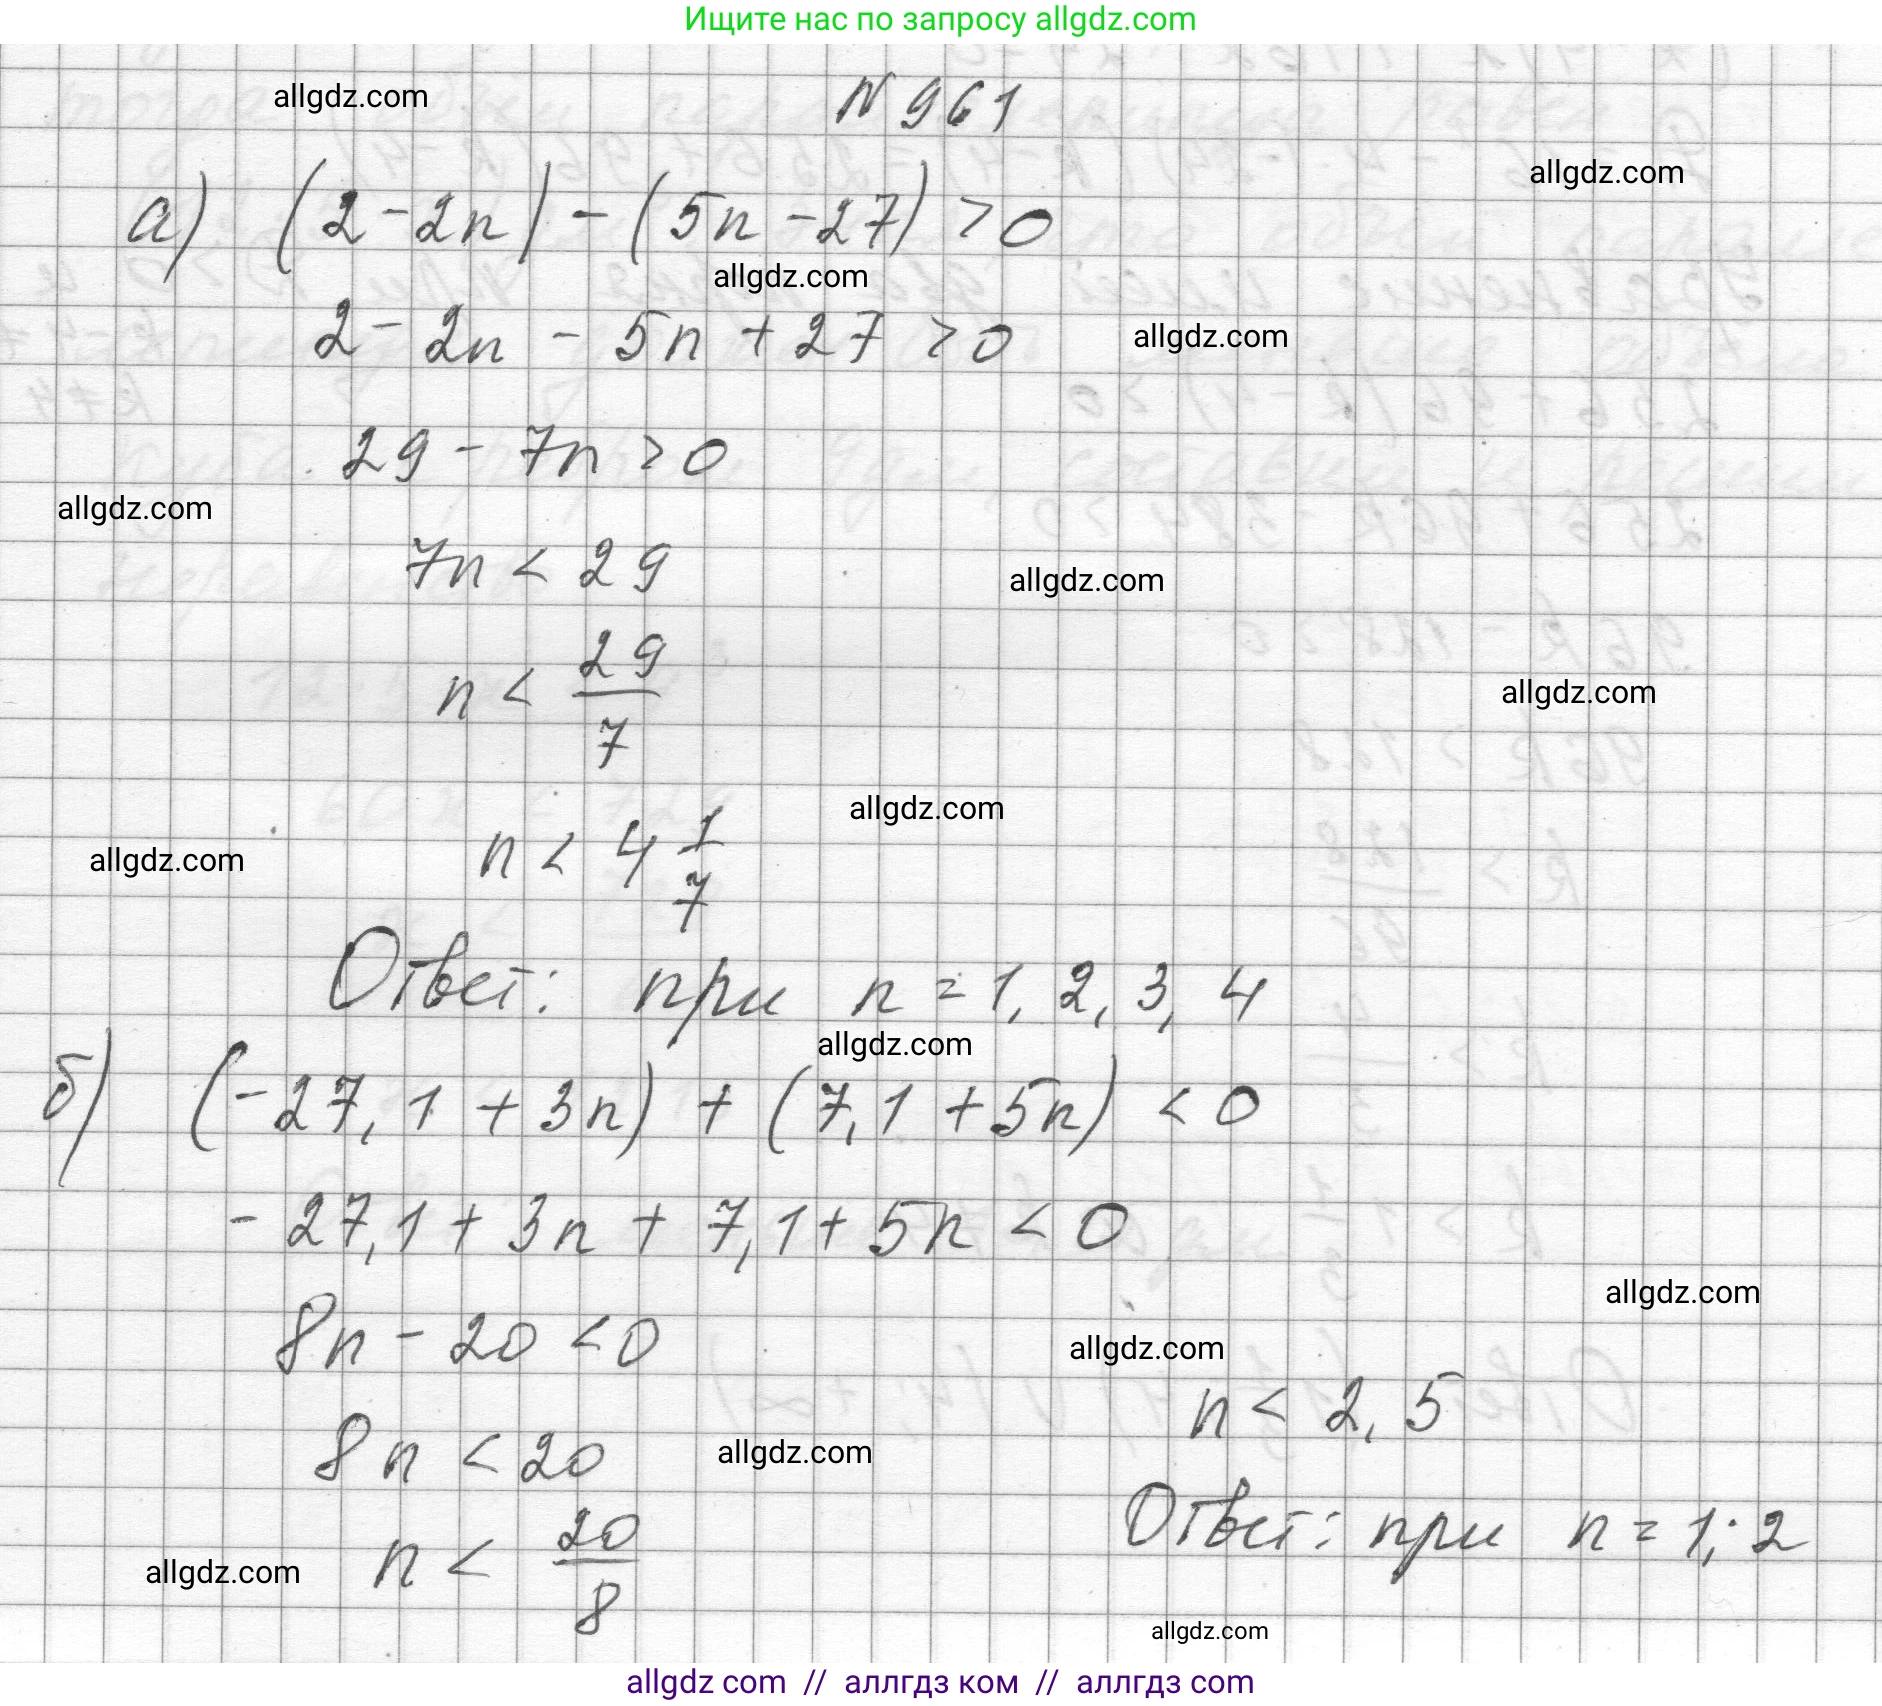 Ищите нас по запросу allgdz.com
allgdz.com
N 961
allgdz.com
а) (2 - 2n) - (5n - 27) > 0
allgdz.com
2 - 2n - 5n + 27 > 0
allgdz.com
29 - 7n > 0
allgdz.com
7n < 29
allgdz.com
n < 29/7
allgdz.com
allgdz.com
n < 4 1/7
allgdz.com
Ответ: при n = 1, 2, 3, 4
allgdz.com
б) (-27,1 + 3n) + (7,1 + 5n) < 0
-27,1 + 3n + 7,1 + 5n < 0
allgdz.com
8n - 20 < 0
allgdz.com
8n < 20
allgdz.com
n < 20/8
allgdz.com
n < 2,5
Ответ: при n = 1; 2
allgdz.com
allgdz com // аллгдз ком // аллгдз com